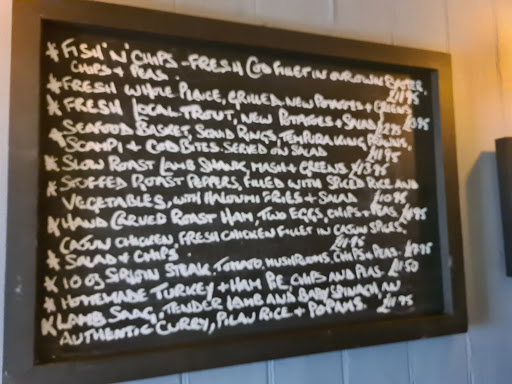 * FISH 'N' CHIPS - FRESH COD FILLET IN OUR OWN BATTER,
CHIPS + PEAS. £11.95
* FRESH WHOLE PLAICE, GRILLED, NEW POTATOES + GREENS
* FRESH LOCAL TROUT, NEW POTATOES + SALAD
* SEAFOOD BASKET, SQUID RINGS, TEMPURA KING PRAWNS,
SCAMPI + COD BITES. SERVED ON SALAD £11.95
* SLOW ROAST LAMB SHANK, MASH + GREENS £13.95
* STUFFED ROAST PEPPERS, FILLED WITH SPICED RICE AND
VEGETABLES, WITH HALOUMI FRIES + SALAD £10.95
* HAND CARVED ROAST HAM, TWO EGGS, CHIPS + PEAS
CAJUN CHICKEN, FRESH CHICKEN FILLET IN CAJUN SPICES,
* SALAD + CHIPS. £11.95
* 10 OZ SIRLOIN STEAK, TOMATO, MUSHROOMS, CHIPS + PEAS.
* HOMEMADE TURKEY + HAM PIE, CHIPS AND PEAS
* LAMB SAAG, TENDER LAMB AND BABY SPINACH AN
AUTHENTIC CURRY, PILAU RICE + POPAMS. £11.95